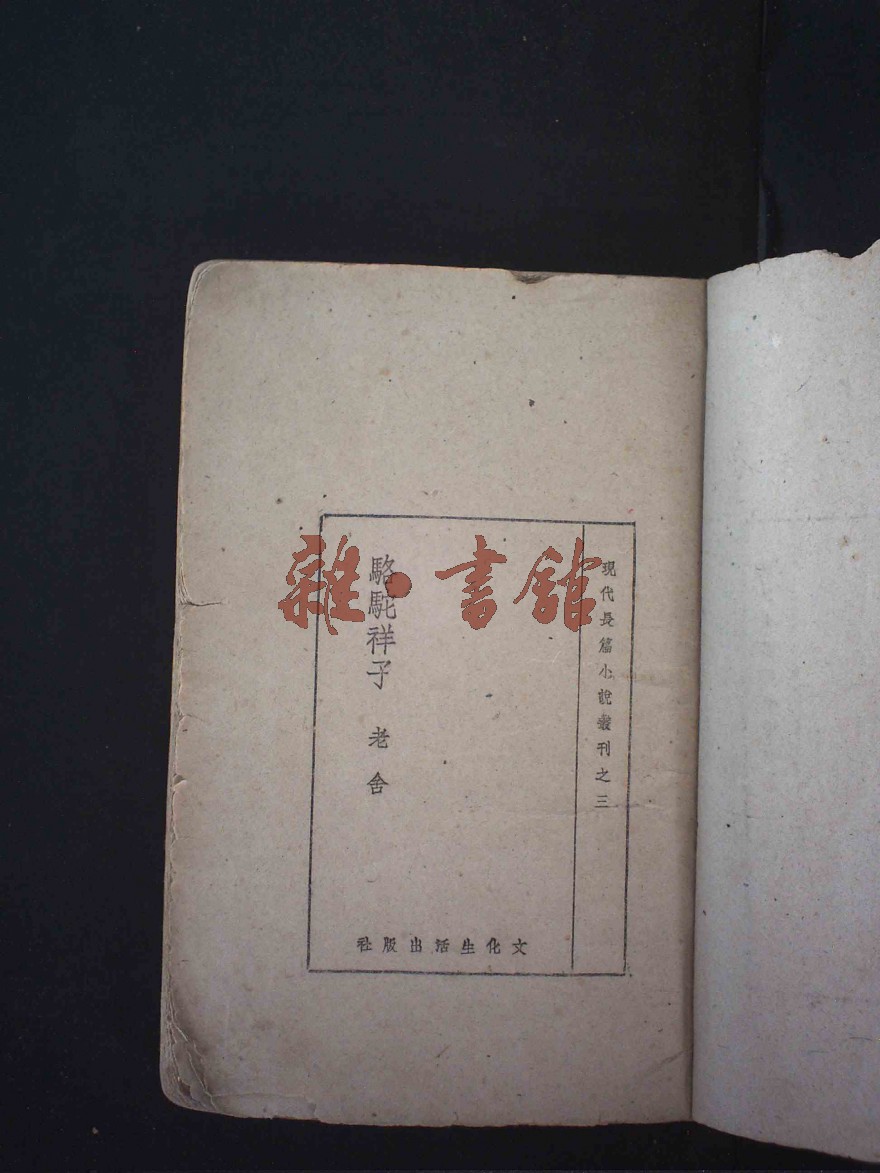 現代長篇小說叢刊之三
駱駝祥子 老舍
文化生活出版社
雜·書館